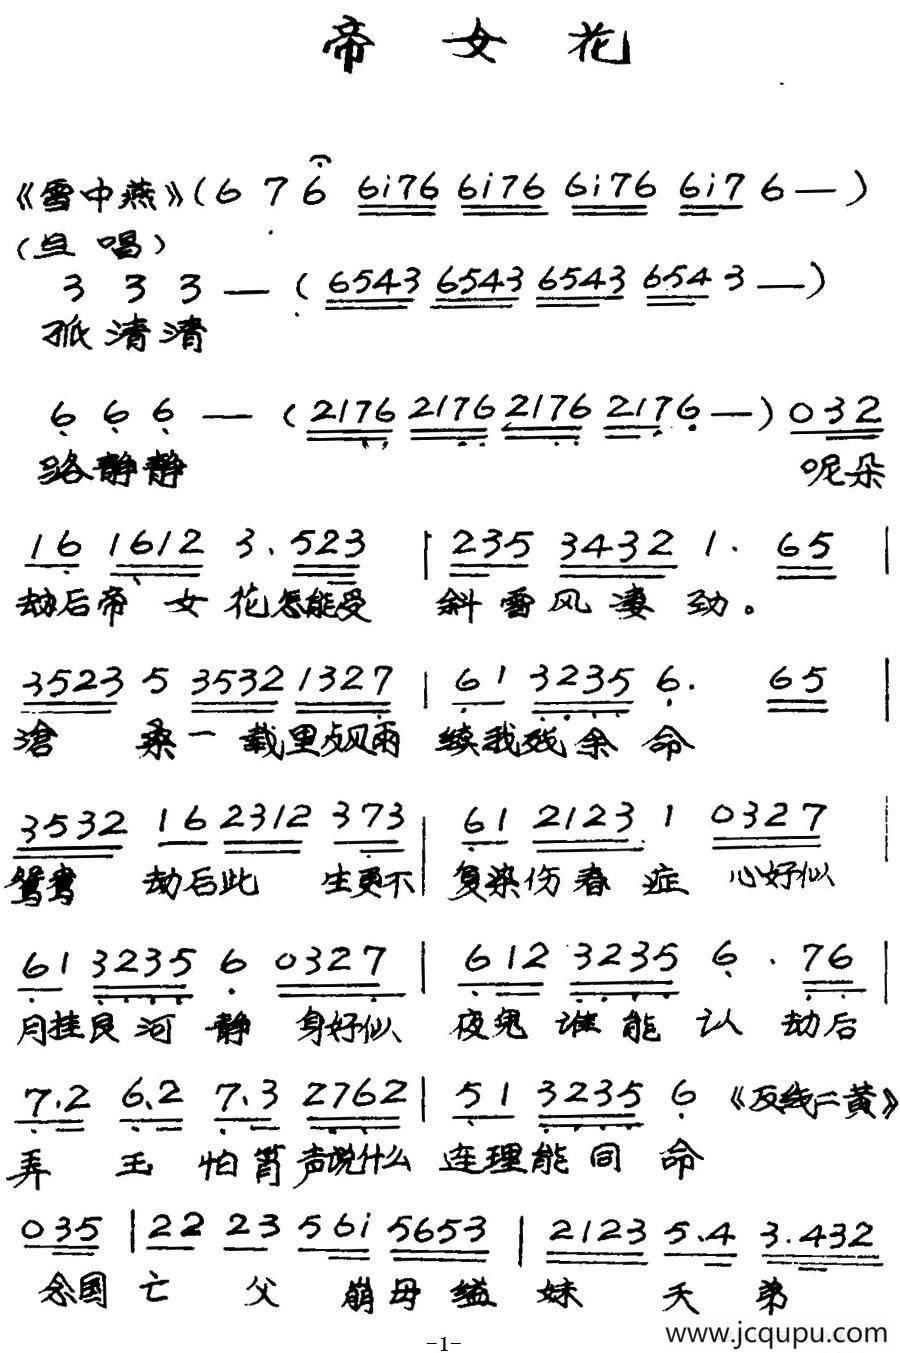 帝女花
《雪中燕》(6 7 6 6i76 6i76 6i76 6i7 6 —)
(旦唱)
3 3 3 — (6543 6543 6543 654 3 —)
孤清清
6 6 6 — (2176 2176 2176 217 6 —) 032
路静静 呢朵
16 1612 3. 523 | 235 3432 1. 65 |
劫后帝女花怎能受 斜雪风凄劲。
3523 5 3532 1327 | 61 3235 6. 65 |
沧桑一载里点风雨 续我残余命
3532 16 2312 373 | 61 2123 1 0327 |
鸳鸯 劫后此 生更不 复染伤春症 心好似
61 3235 6 0327 | 612 3235 6. 76 |
月挂良河静 身好似 夜鬼谁能认 劫后
7.2 6.2 7.3 2762 | 51 3235 6 《反线二黄》
弄玉怕箫声说什么 连理能同命
035 | 22 23 56i 5653 | 2123 5.4 3.432
念国亡父崩母缢妹夭弟
www.jcqupu.com
-1-